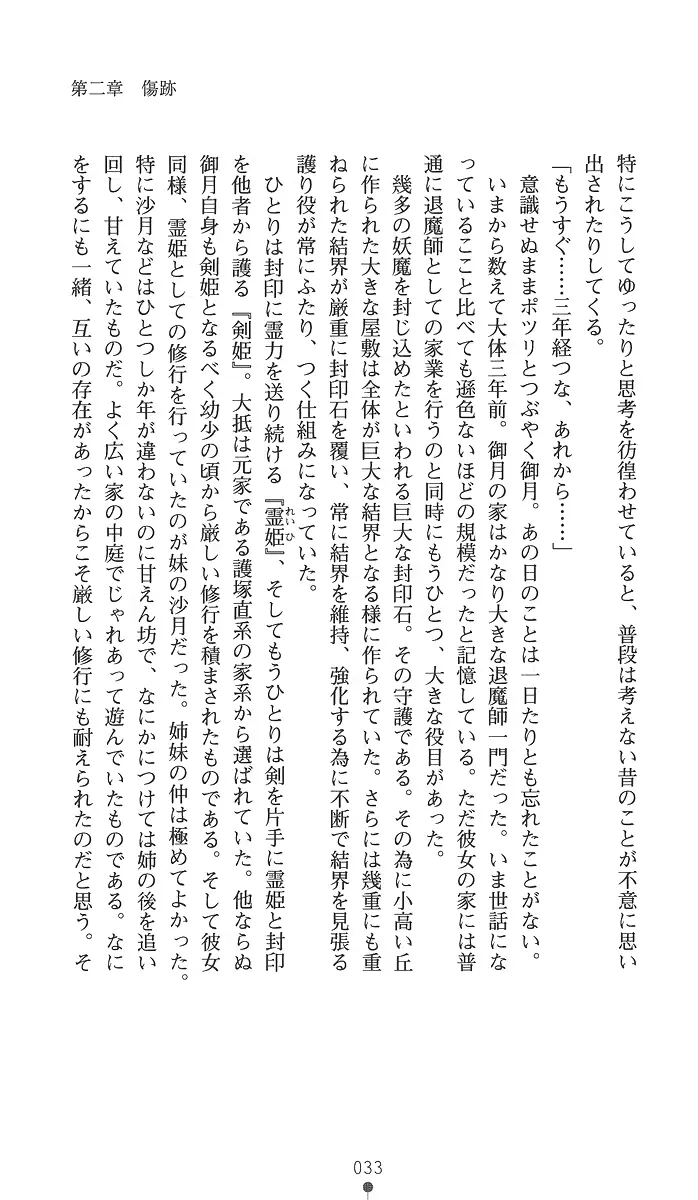 第二章　傷跡
特にこうしてゆったりと思考を彷徨わせていると、普段は考えない昔のことが不意に思い
出されたりしてくる。
「もうすぐ……三年経つな、あれから……」
　意識せぬままポツリとつぶやく御月。あの日のことは一日たりとも忘れたことがない。
　いまから数えて大体三年前。御月の家はかなり大きな退魔師一門だった。いま世話にな
っているここと比べても遜色ないほどの規模だったと記憶している。ただ彼女の家には普
通に退魔師としての家業を行うのと同時にもうひとつ、大きな役目があった。
　幾多の妖魔を封じ込めたといわれる巨大な封印石。その守護である。その為に小高い丘
に作られた大きな屋敷は全体が巨大な結界となる様に作られていた。さらには幾重にも重
ねられた結界が厳重に封印石を覆い、常に結界を維持、強化する為に不断で結界を見張る
護り役が常にふたり、つく仕組みになっていた。
　ひとりは封印に霊力を送り続ける『霊姫』、そしてもうひとりは剣を片手に霊姫と封印
れいひ
を他者から護る『剣姫』。大抵は元家である護塚直系の家系から選ばれていた。他ならぬ
御月自身も剣姫となるべく幼少の頃から厳しい修行を積まされたものである。そして彼女
同様、霊姫としての修行を行っていたのが妹の沙月だった。姉妹の仲は極めてよかった。
特に沙月などはひとつしか年が違わないのに甘えん坊で、なにかにつけては姉の後を追い
回し、甘えていたものだ。よく広い家の中庭でじゃれあって遊んでいたものである。なに
をするにも一緒、互いの存在があったからこそ厳しい修行にも耐えられたのだと思う。そ
033